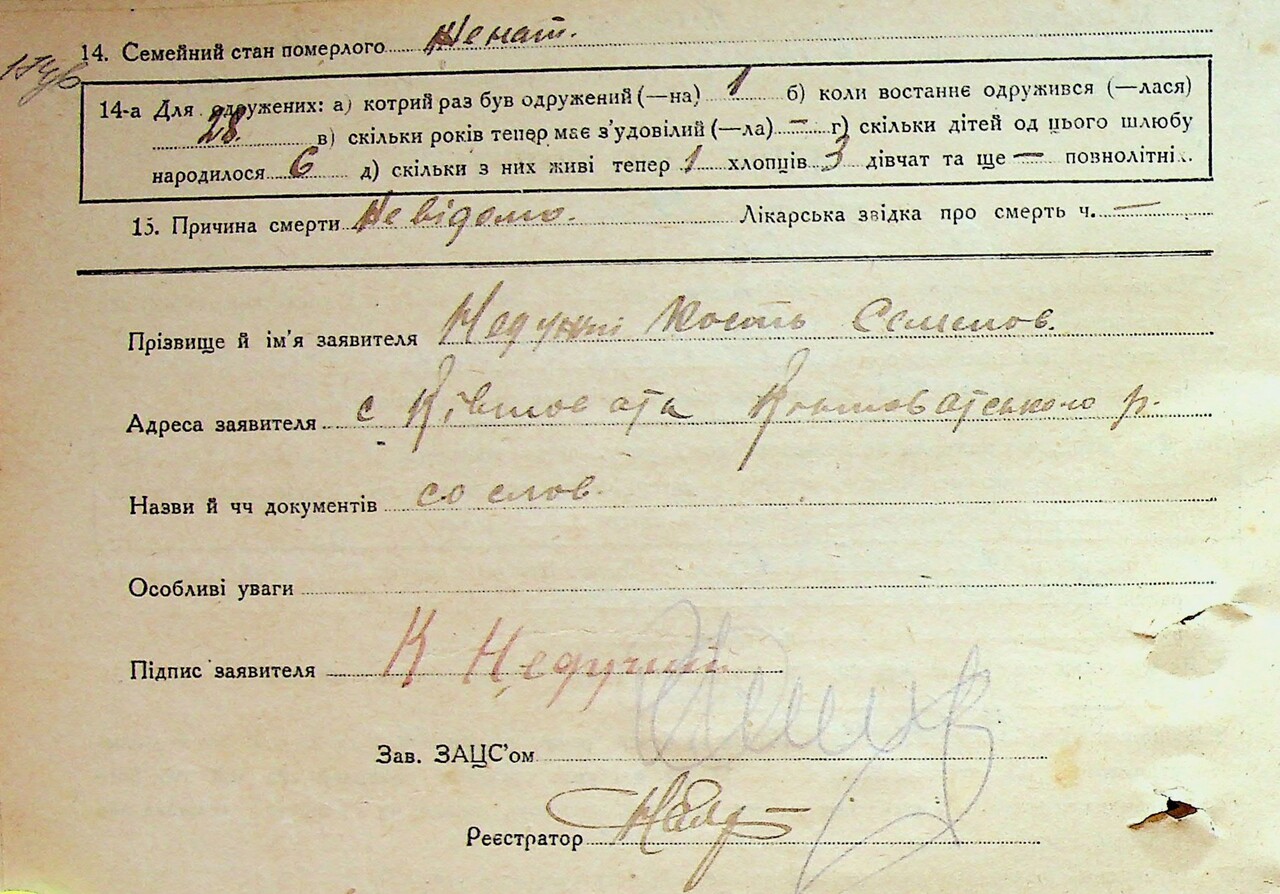 14. Семейний стан померлого Женат.
14-а Для одружених: а) котрий раз був одружений (—на) 1 б) коли востаннє одружився (—лася)
28 в) скільки років тепер має з’удовілий (—ла) — г) скільки дітей од цього шлюбу
народилося 6 д) скільки з них живі тепер 1 хлопців 3 дівчат та ще — повнолітніх.
15. Причина смерти Невідомо. Лікарська звідка про смерть ч. —
Прізвище й ім’я заявителя Недучий Кость Семенов.
Адреса заявителя с Ківшовата Ківшоватського р.
Назви й чч документів со слов.
Особливі уваги
Підпис заявителя К Недучий
Зав. ЗАЦС’ом
Реєстратор